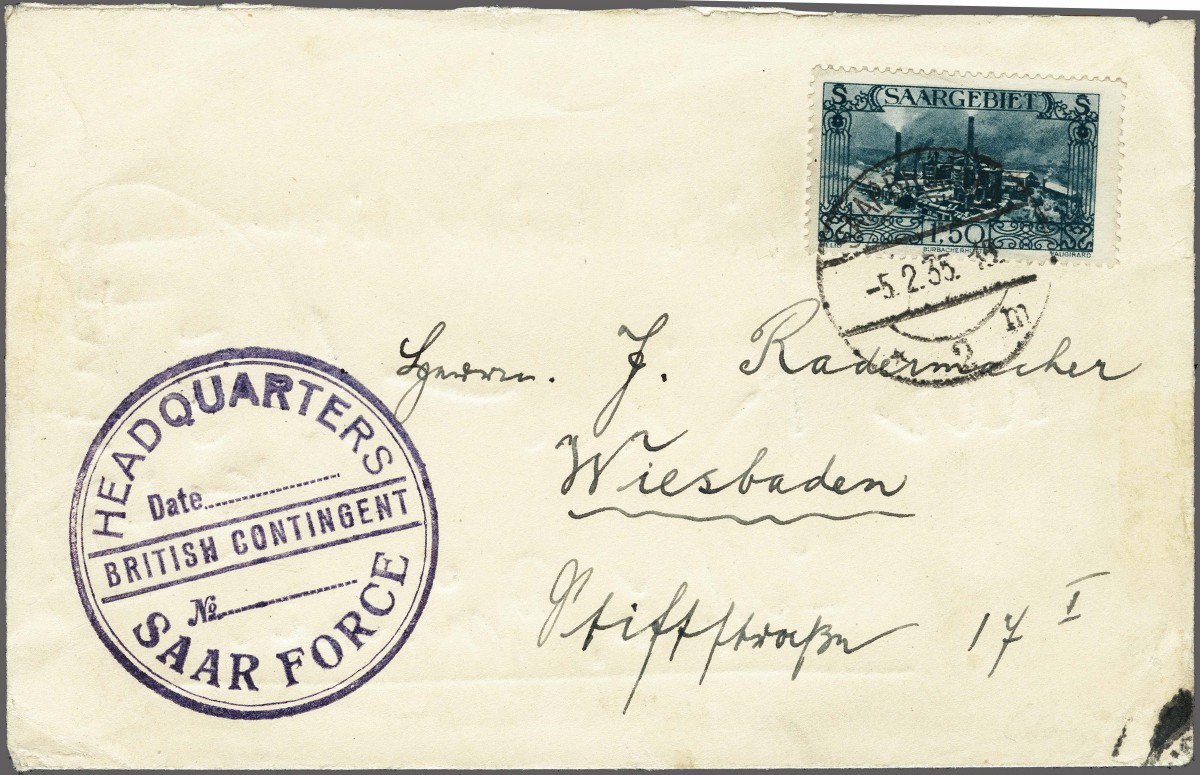 S SAARGEBIET S
1.50
BURBACHERHÜTTE
VAUGIRARD
-5.2.35.
2 m
Herrn. J. Radermacher
Wiesbaden
Stiftstraße 17 I
HEADQUARTERS
Date
BRITISH CONTINGENT
No.
SAAR FORCE